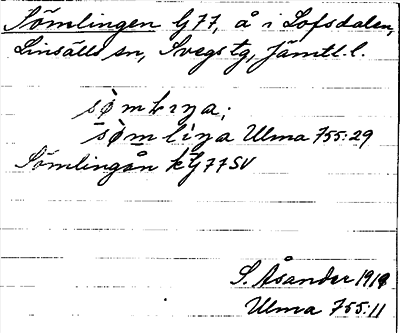 Sömlingen G77, å i Lofsdalen,
Linsälls sn, Svegs tg, Jämtl. l.
sö̀mlıŋa;
sö̀mlıŋa Ulma 755:29
Sömlingån kG77SV
S. Åsander 1919
Ulma 755:11